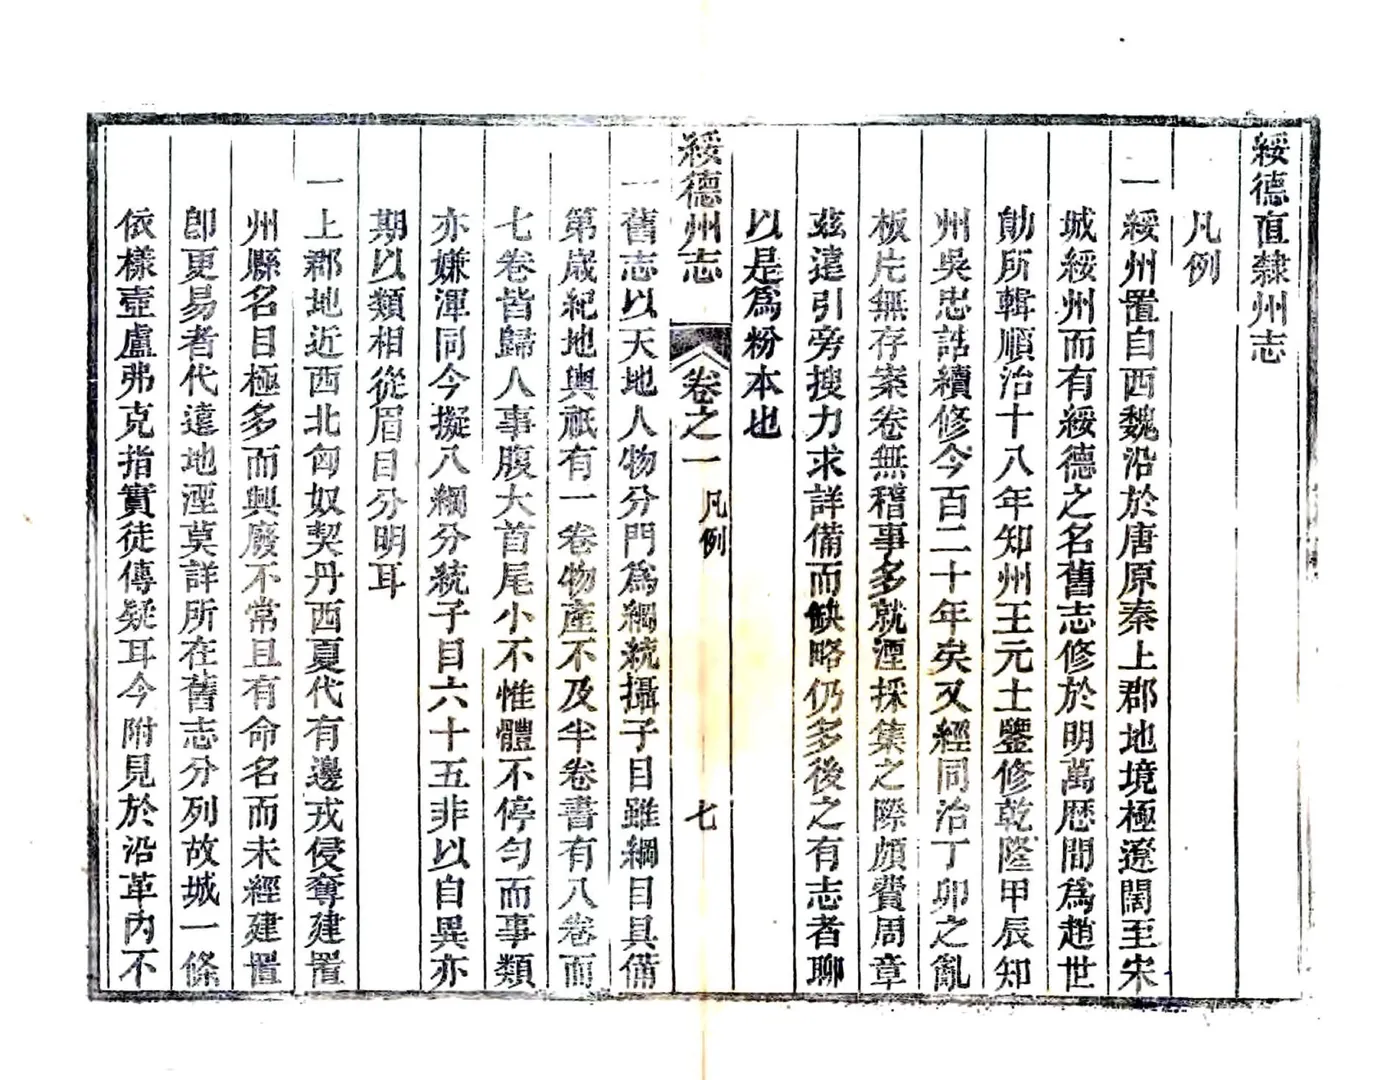 綏德直隸州志
凡例
一綏州置自西魏沿於唐原秦上郡地境極遼闊至宋
城綏州而有綏德之名舊志修於明萬歴間爲趙世
勛所輯順治十八年知州王元士鑒修乾隆甲辰知
州吳忠誥續修今百二十年矣又經同治丁卯之亂
板片無存案卷無稽事多就湮採集之際頗費周章
茲遠引旁搜力求詳備而缺略仍多後之有志者聊
以是爲粉本也
綏德州志
卷之一
凡例
七
一舊志以天地人物分門爲綱統攝子目雖綱目具備
第歲紀地輿祇有一卷物產不及半卷書有八卷而
七卷皆歸人事腹大首尾小不惟體不停勻而事類
亦嫌渾同今擬八綱分統子目六十五非以自異亦
期以類相從眉目分明耳
一上郡地近西北匈奴契丹西夏代有邊戎侵奪建置
州縣名目極多而興廢不常且有命名而未經建置
卽更易者代遠地湮莫詳所在舊志分列故城一條
依樣壺盧弗克指實徒傳疑耳今附見於沿革內不